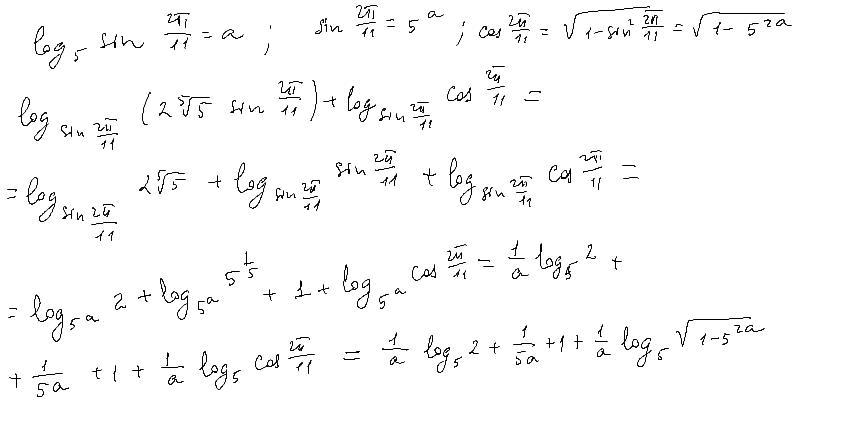 log₅ sin 2π/11 = a ; sin 2π/11 = 5^a ; cos 2π/11 = √(1-sin² 2π/11) = √(1-5^(2a))
log_(sin 2π/11) (2 ⁵√5 sin 2π/11) + log_(sin 2π/11) cos 2π/11 =
= log_(sin 2π/11) 2 ⁵√5 + log_(sin 2π/11) sin 2π/11 + log_(sin 2π/11) cos 2π/11 =
= log_(5^a) 2 + log_(5^a) 5^(1/5) + 1 + log_(5^a) cos 2π/11 = 1/a log₅ 2 +
+ 1/(5a) + 1 + 1/a log₅ cos 2π/11 = 1/a log₅ 2 + 1/(5a) + 1 + 1/a log₅ √(1-5^(2a))